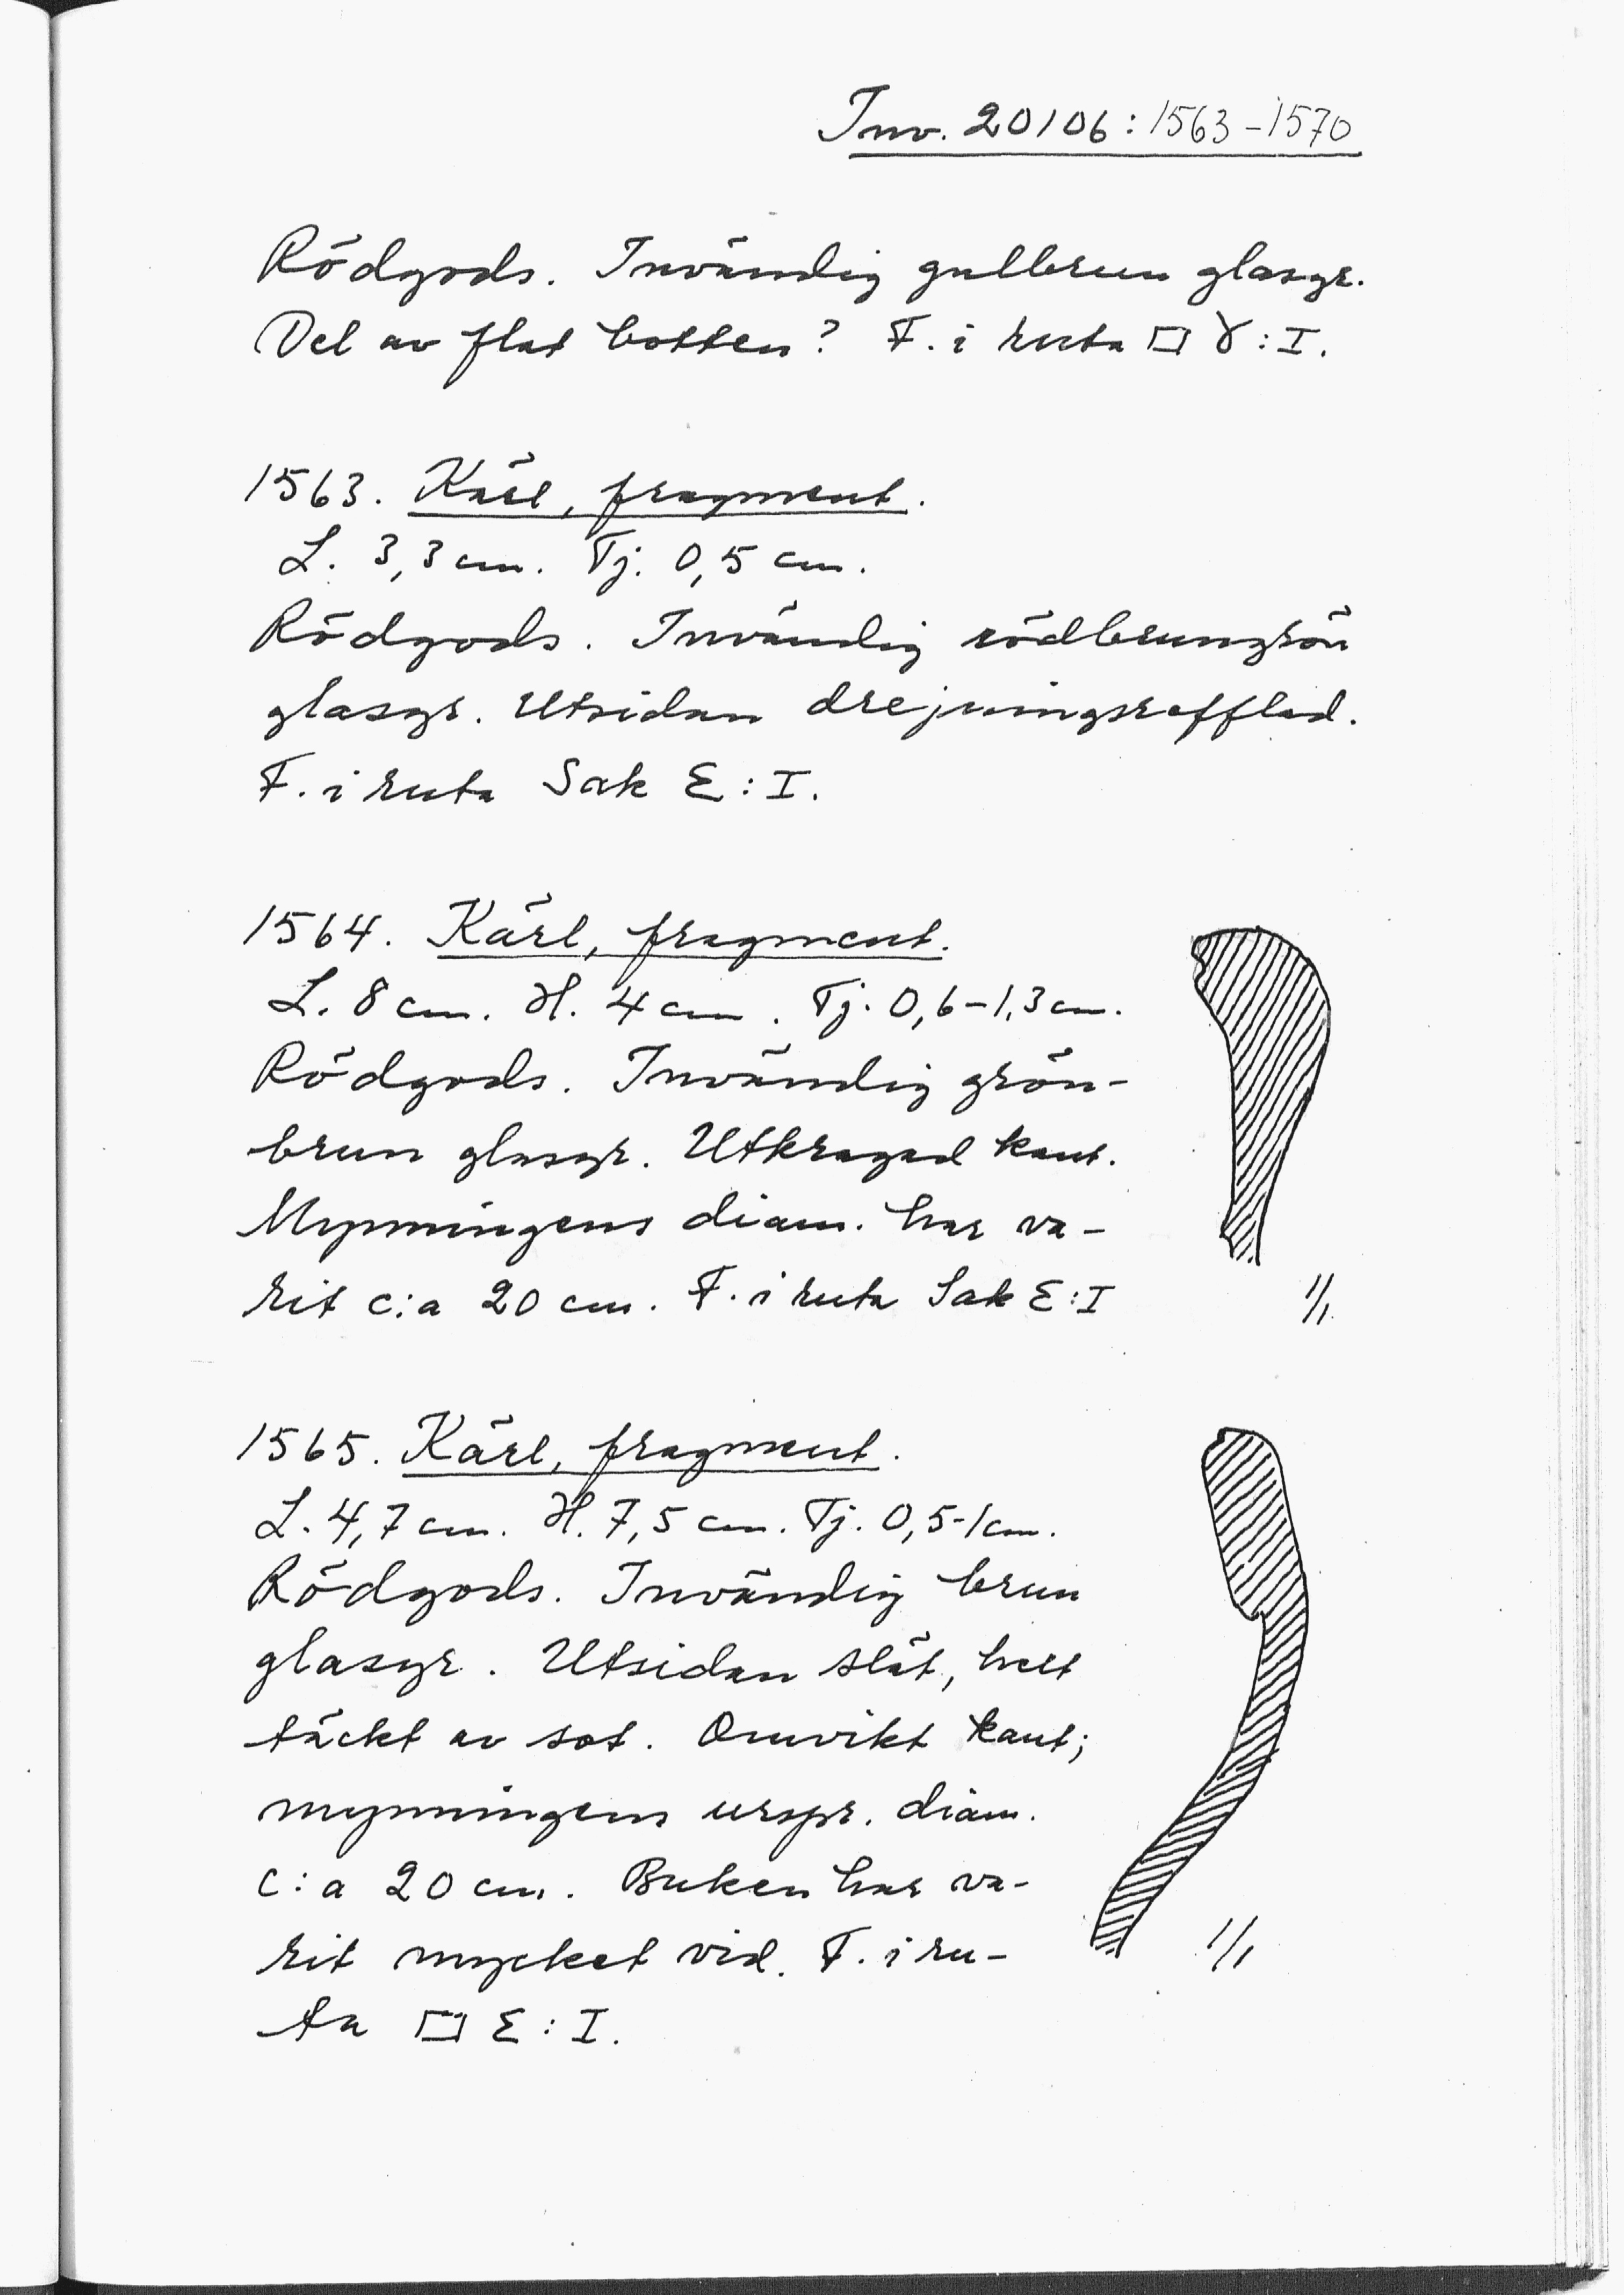 Inv. 20106: 1563-1570
Rödgods. Invändig gulbrun glasyr.
Del av flat botten? F. i ruta □ γ: I.
1563. Kärl, fragment.
L. 3,3 cm. Tj. 0,5 cm.
Rödgods. Invändig rödbrungrön
glasyr. Utsidan drejningsrefflad.
F. i ruta Sak Σ: I.
1564. Kärl, fragment.
L. 8 cm. H. 4 cm. Tj. 0,6-1,3 cm.
Rödgods. Invändig grön-
brun glasyr. Utkragad kant.
Mynningens diam. har va-
rit c:a 20 cm. F. i ruta Sak Σ: I
1/1.
1565. Kärl, fragment.
L. 4,7 cm. H. 7,5 cm. Tj. 0,5-1 cm.
Rödgods. Invändig brun
glasyr. Utsidan slät, helt
täckt av sot. Omvikt kant;
mynningens urspr. diam.
c:a 20 cm. Buken har va-
rit mycket vid. F. i ru-
ta □ Σ: I.
1/1